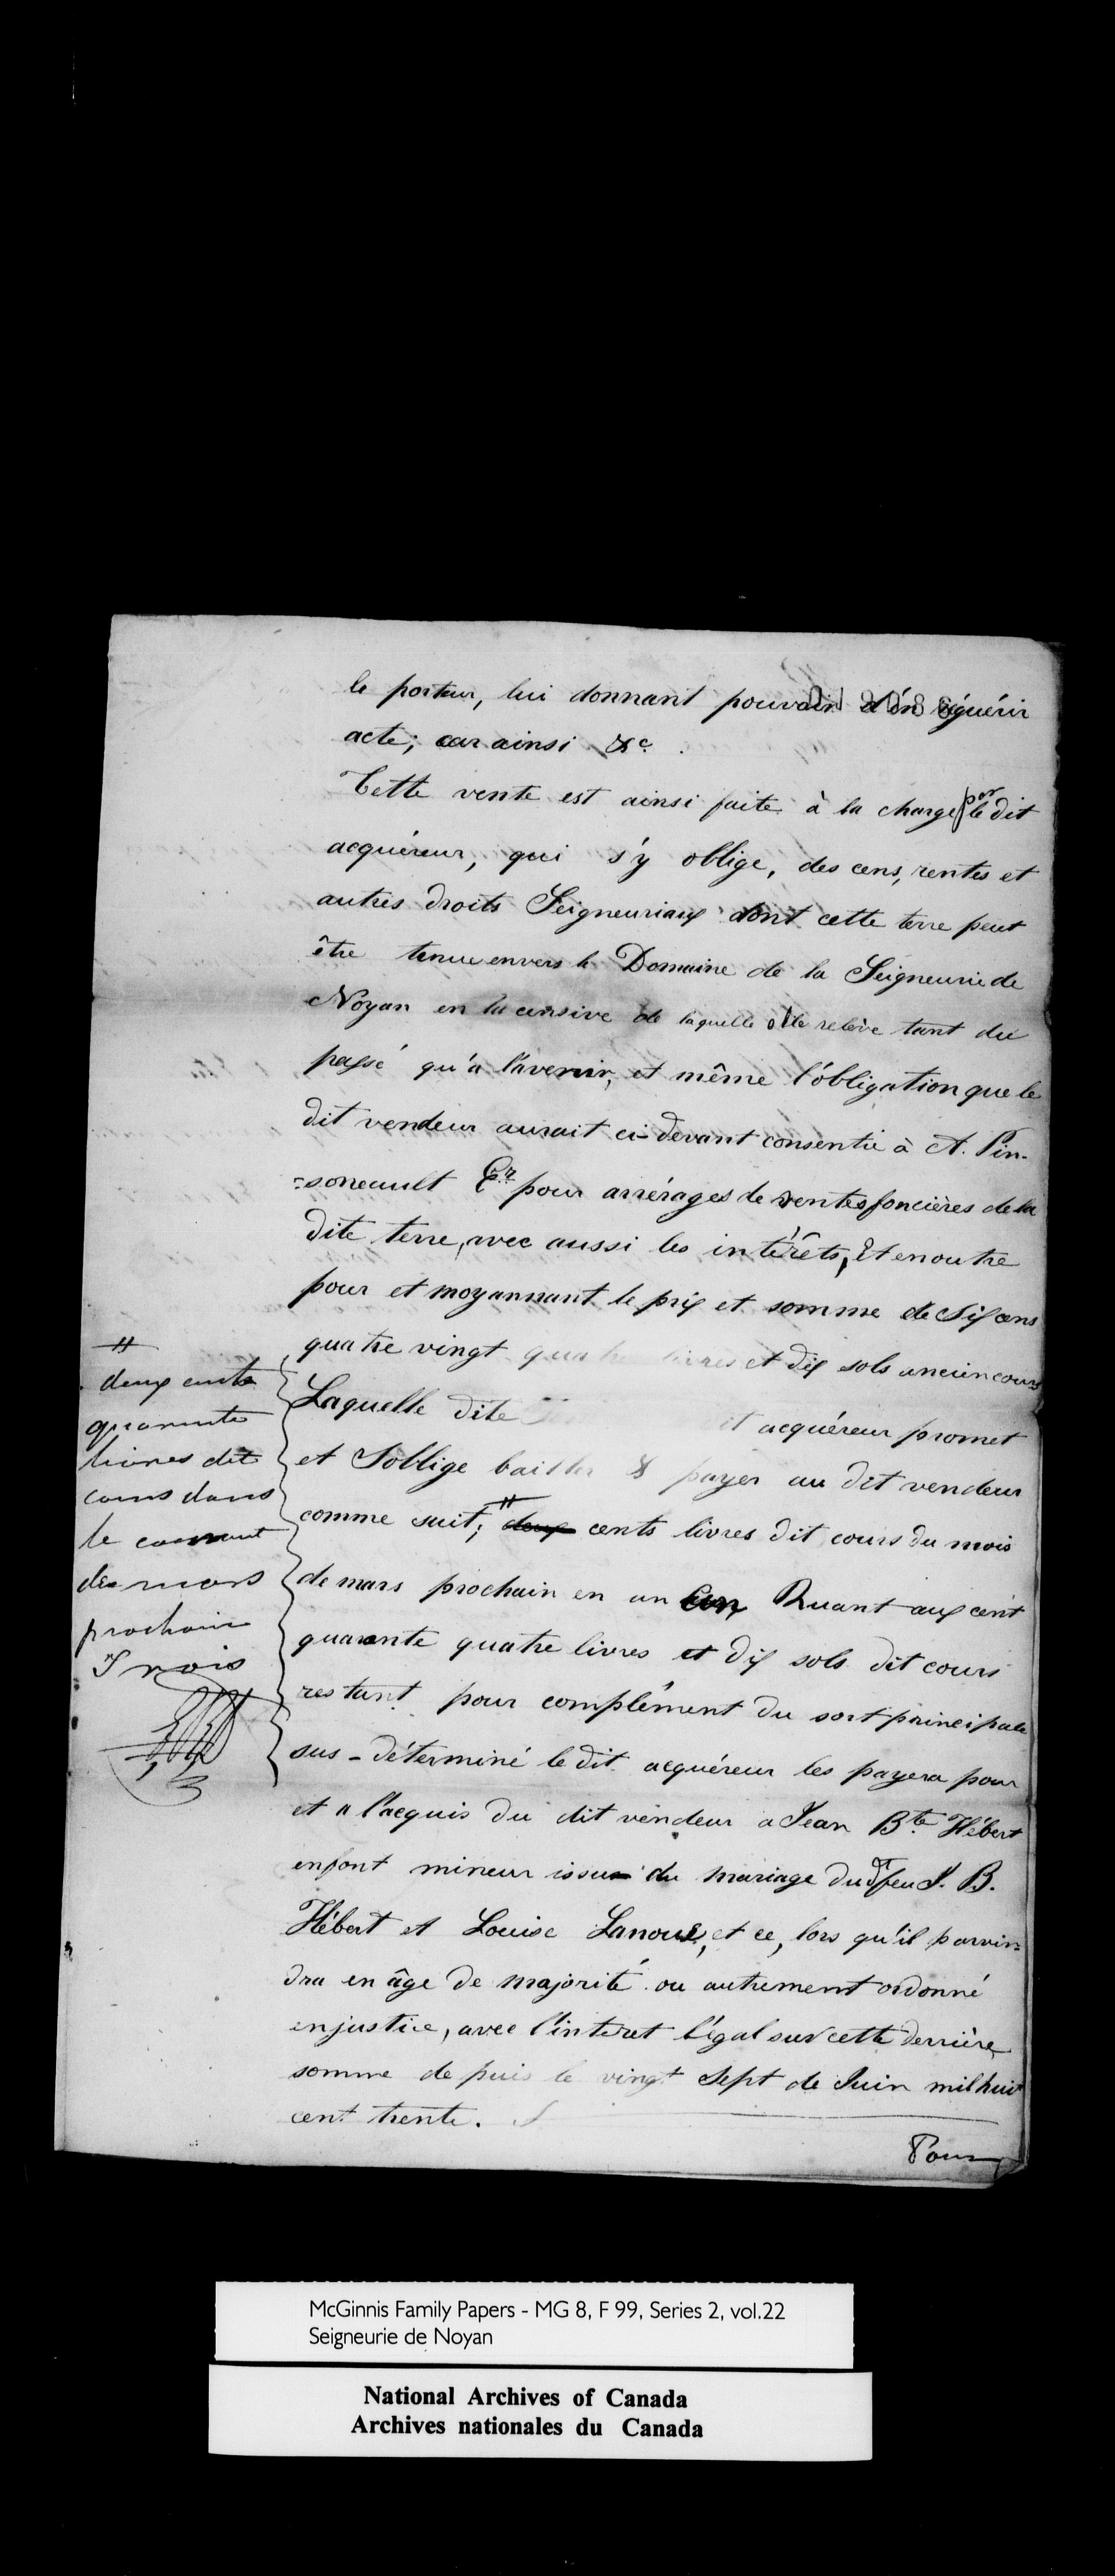 le porteur, lui donnant pouvoir d'en réquérir
acte; car ainsi &c.
Cette vente est ainsi faite à la charge par le dit
acquéreur, qui s'y oblige, des cens, rentes et
autres droits Seigneuriaux dont cette terre peut
être tenue envers le Domaine de la Seigneurie de
Noyan en la censive de laquelle elle relève tant du
passé qu'a l'avenir, et même l'obligation que le
dit vendeur aurait ci-devant consentie à A. Pin-
=soneault Er pour arrérages de rentes foncières de la
dite terre, avec aussi les intérêts, Et en outre
pour et moyannant le prix et somme de Six cens
quatre vingt quatre livres et dix sols ancien cours
Laquelle dite dit acquéreur promet
et S'oblige bailler & payer au dit vendeur
comme suit; deux cents livres dit cours du mois
de mars prochain en un an Quant aux cent
quarante quatre livres et dix sols dit cours
restant pour complément du sort principale
sus-déterminé le dit acquéreur les payera pour
et a l'acquis du dit vendeur a Jean Bte Hébert
enfant mineur issu du mariage du dt feu J. B.
Hébert et Louise Lanoue, et ce, lors qu'il parvin=
dra en âge de majorité ou autrement ordonné
en justice, avec l'interet légal sur cette derrière
somme de puis le vingt Sept de Juin mil huit
cent trente.
Pour
deux cents
quarante
livres dit
cours dans
le courant
de mars
prochain
McGinnis Family Papers - MG 8, F 99, Series 2, vol.22
Seigneurie de Noyan
National Archives of Canada
Archives nationales du Canada